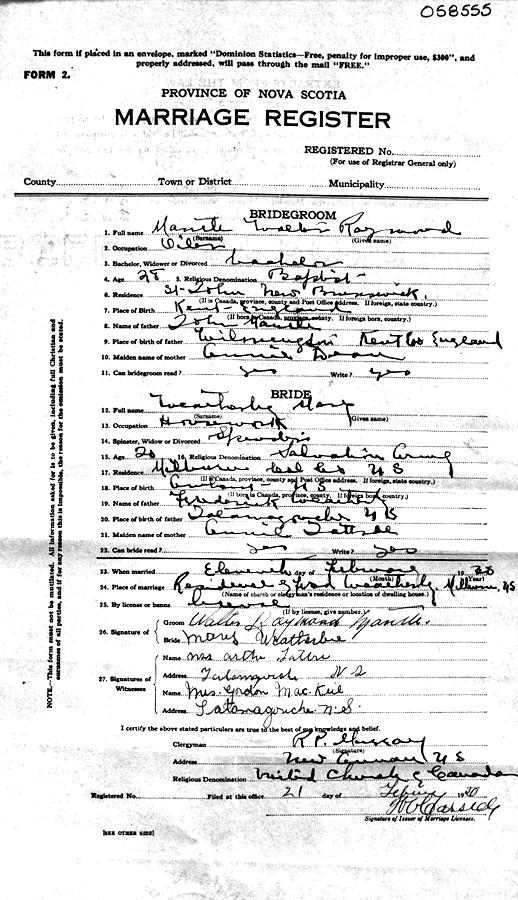 058555
This form if placed in an envelope, marked "Dominion Statistics—Free, penalty for improper use, $300", and
properly addressed, will pass through the mail "FREE."
FORM 2.
PROVINCE OF NOVA SCOTIA
MARRIAGE REGISTER
REGISTERED No.
(For use of Registrar General only)
County Town or District Municipality
BRIDEGROOM
1. Full name Walter Raymond
(Surname) (Given name)
2. Occupation
3. Bachelor, Widower or Divorced bachelor
4. Age 28 5. Religious Denomination Baptist
6. Residence St. John New Brunswick
(If in Canada, province, county and Post Office address. If foreign, state country.)
7. Place of Birth Kent England
(If born in Canada, province, county. If foreign born, country.)
8. Name of father John
9. Place of birth of father Kent Co England
10. Maiden name of mother Annie
11. Can bridegroom read? yes Write? yes
BRIDE
12. Full name Weatherby Mary
(Surname) (Given name)
13. Occupation Housework
14. Spinster, Widow or Divorced Spinster
15. Age 20 16. Religious Denomination Salvation Army
17. Residence Melbourne Col Co NS
(If in Canada, province, county and Post Office address. If foreign, state country.)
18. Place of birth NS
(If born in Canada, province, county. If foreign born, country.)
19. Name of father Frederick
20. Place of birth of father Tatamagouche NS
21. Maiden name of mother Annie
22. Can bride read? yes Write? yes
23. When married Eleventh day of February 1930
(Month) (Year)
24. Place of marriage Residence of Fred Weatherby, NS
(Name of church or clergyman's residence or location of dwelling house.)
25. By license or banns license
(If by license, give number.)
26. Signature of
Groom Walter Raymond
Bride Mary Weatherbie
27. Signatures of
Witnesses
Name Mrs Arthur
Address Tatamagouche N S
Name Mrs. Gordon MacKeil
Address Tatamagouche N.S.
I certify the above stated particulars are true to the best of my knowledge and belief.
Clergyman R.P.
(Signature)
Address New Annan NS
Religious Denomination United Church of Canada
Registered No. Filed at this office 21 day of 1930
Signature of Issuer of Marriage Licenses.
[SEE OTHER SIDE]
NOTE.—This form must not be mutilated. All information asked for is to be given, including full Christian and
surnames of all parties, and if for any reason this is impossible, the reason for the omission must be stated.